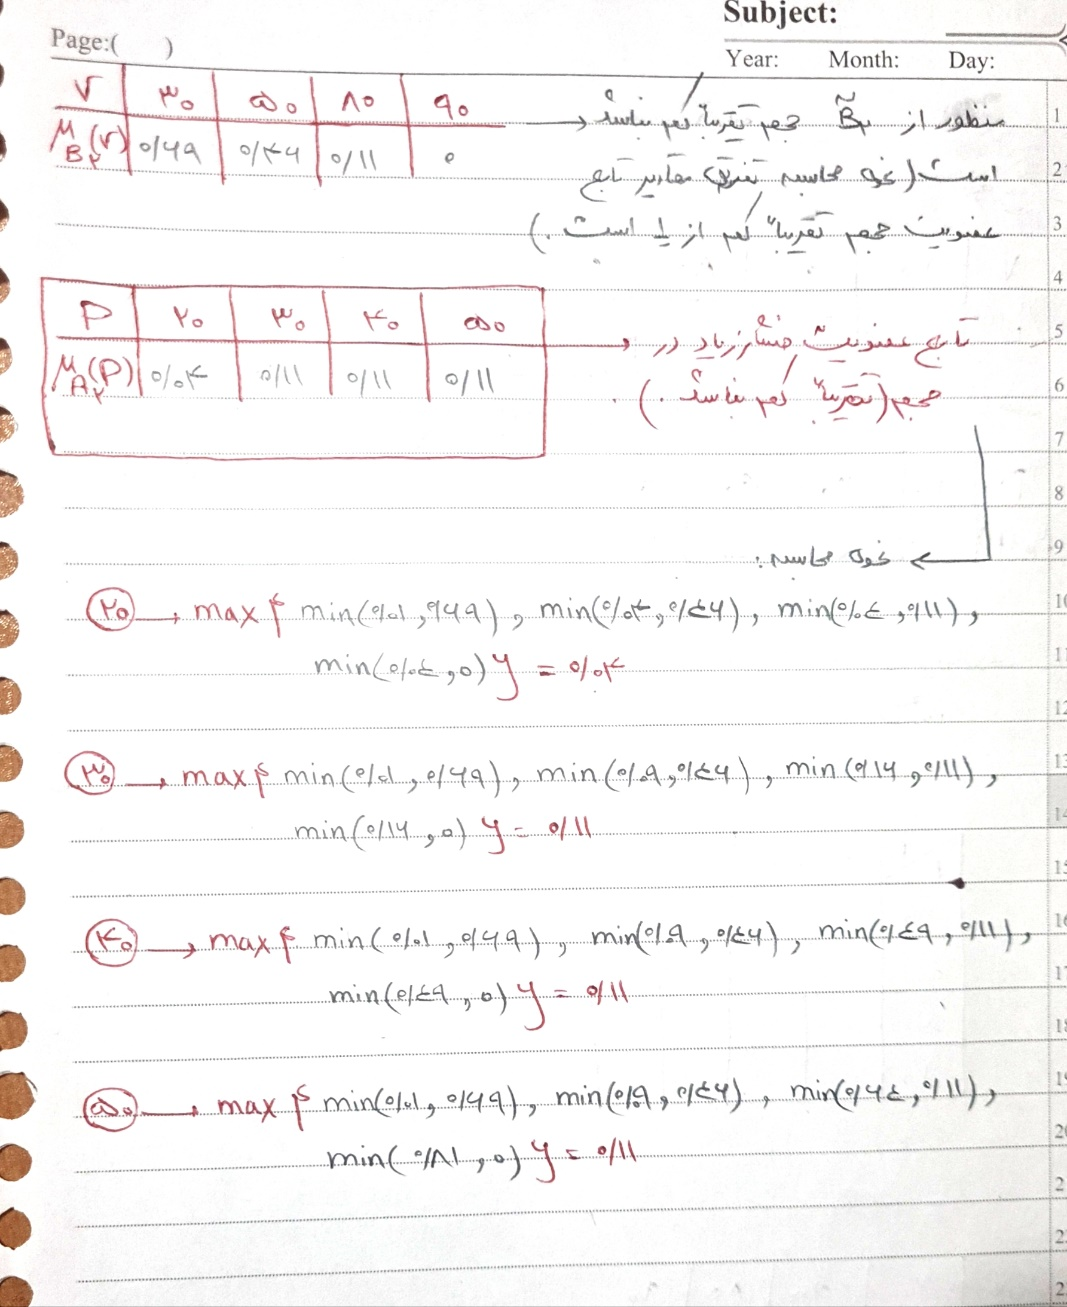 Subject:
Page:( )
Year: Month: Day:
V ۳۰ ۵۰ ۸۰ ۹۰
μB۲(V) ۰/۶۹ ۰/۴۶ ۰/۱۱ ۰
منظور از B̃۲ حجم تقریباً کم نباشد
است (نحوه محاسبه تفریق مقادیر تابع
عضویت حجم تقریباً کم از ۱ است.)
P ۲۰ ۳۰ ۴۰ ۵۰
μA۲(P) ۰/۰۴ ۰/۱۱ ۰/۱۱ ۰/۱۱
تابع عضویت فشار زیاد در
حجم (تقریباً کم نباشد.)
نحوه محاسبه:
۲۰ → max { min(۰/۰۱, ۰/۶۹), min(۰/۰۴, ۰/۴۶), min(۰/۰۴, ۰/۱۱),
min(۰/۰۴, ۰) } = ۰/۰۴
۳۰ → max { min(۰/۰۱, ۰/۶۹), min(۰/۰۹, ۰/۴۶), min(۰/۱۶, ۰/۱۱),
min(۰/۱۶, ۰) } = ۰/۱۱
۴۰ → max { min(۰/۰۱, ۰/۶۹), min(۰/۰۹, ۰/۴۶), min(۰/۴۹, ۰/۱۱),
min(۰/۴۹, ۰) } = ۰/۱۱
۵۰ → max { min(۰/۰۱, ۰/۶۹), min(۰/۰۹, ۰/۴۶), min(۰/۶۴, ۰/۱۱),
min(۰/۸۱, ۰) } = ۰/۱۱
1
2
3
4
5
6
7
8
9